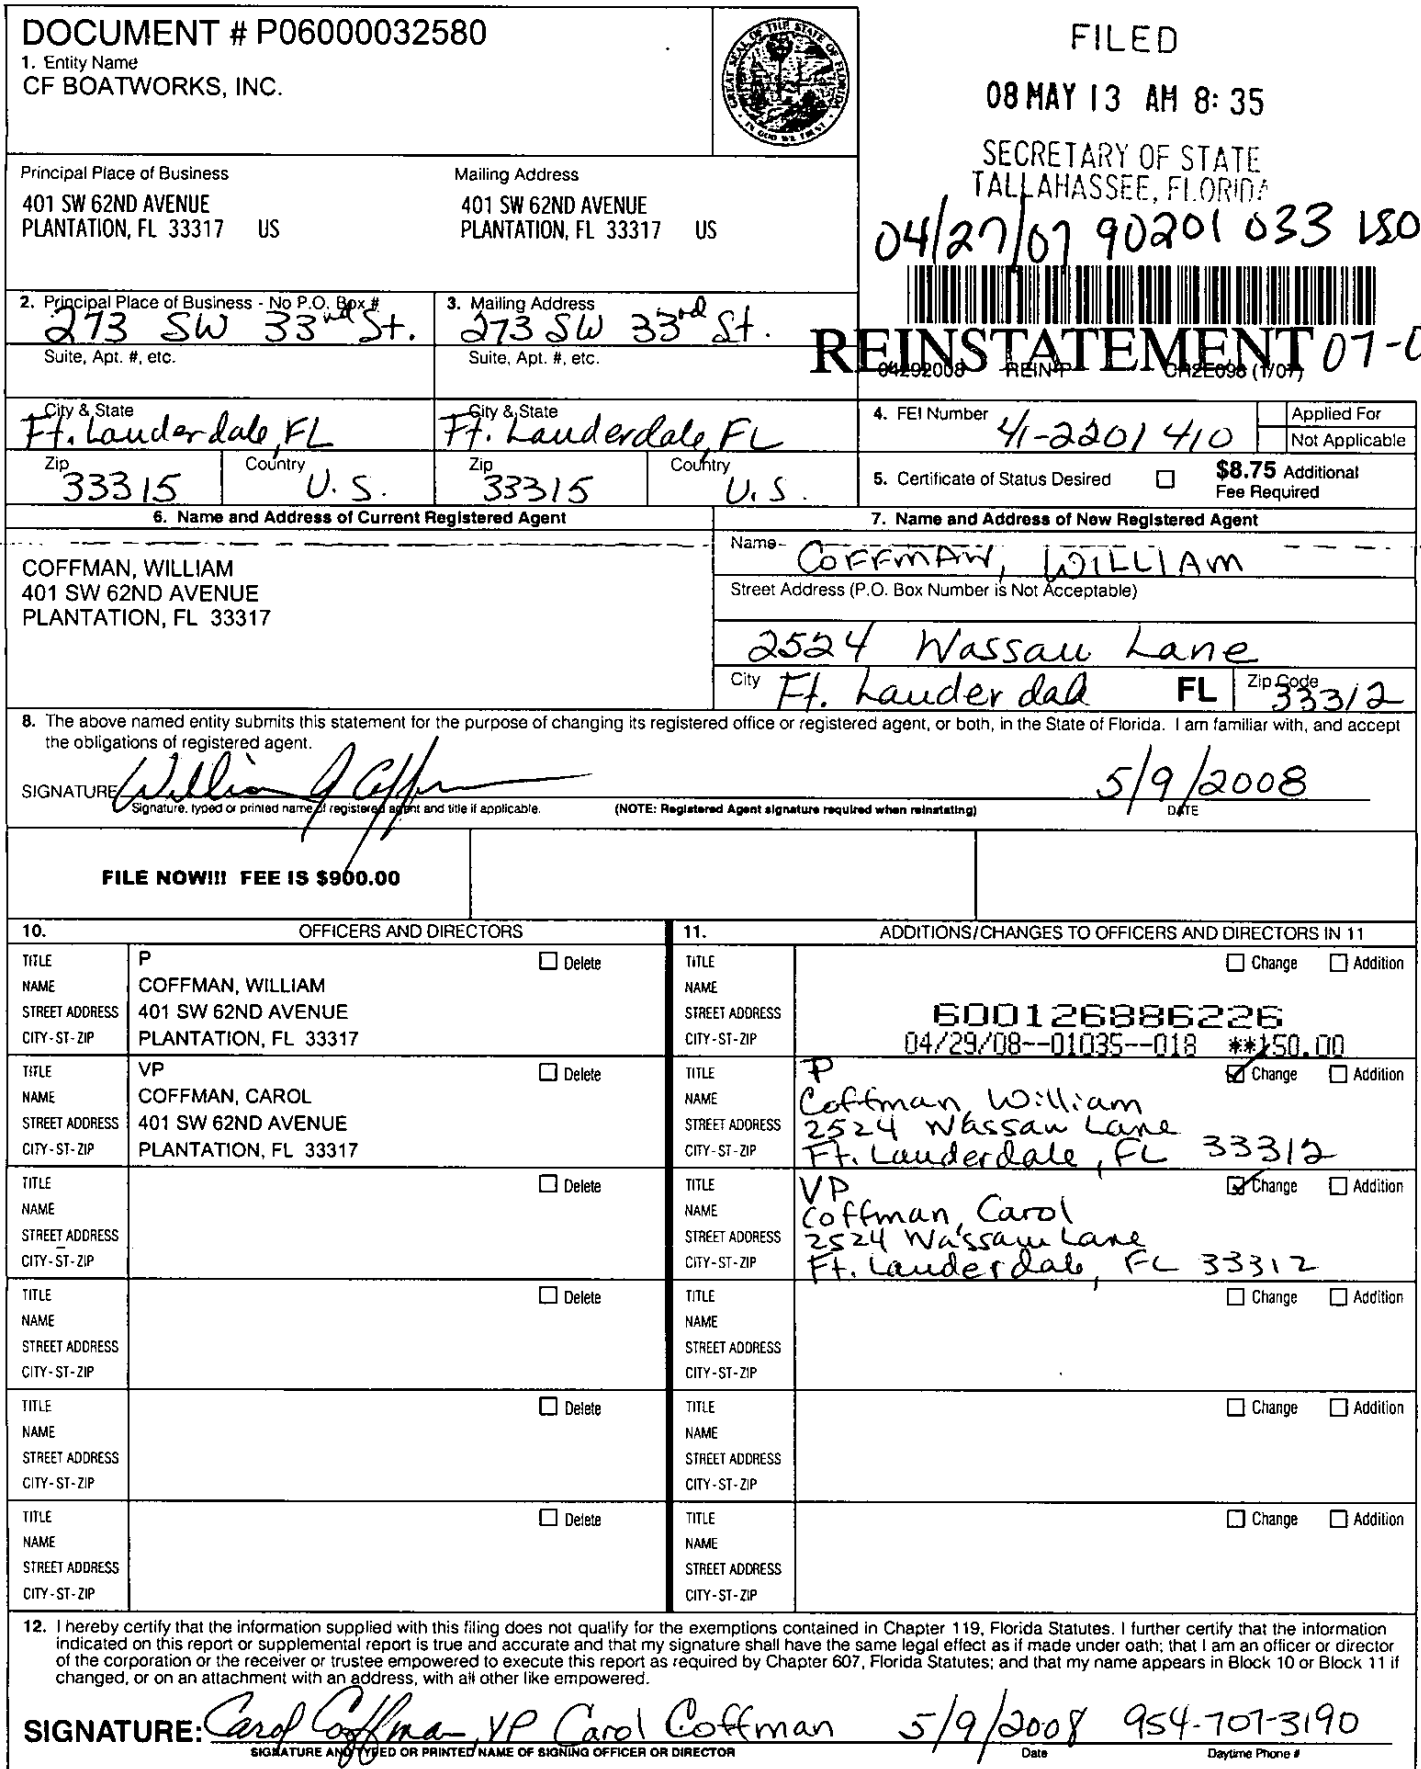 DOCUMENT # P06000032580
1. Entity Name
CF BOATWORKS, INC.
GREAT SEAL OF THE STATE OF FLORIDA
IN GOD WE TRUST
FILED
08 MAY 13 AM 8:35
SECRETARY OF STATE
TALLAHASSEE, FLORIDA
Principal Place of Business
401 SW 62ND AVENUE
PLANTATION, FL 33317 US
Mailing Address
401 SW 62ND AVENUE
PLANTATION, FL 33317 US
04/27/07 90201 033 150
2. Principal Place of Business - No P.O. Box #
273 SW 33rd St.
Suite, Apt. #, etc.
3. Mailing Address
273 SW 33rd St.
Suite, Apt. #, etc.
REINSTATEMENT 07-0
04292008 REIN-P CR2E098 (1/07)
City & State
Ft. Lauderdale, FL
City & State
Ft. Lauderdale, FL
Zip
33315
Country
U.S.
Zip
33315
Country
U.S.
4. FEI Number
41-2201410
Applied For
Not Applicable
5. Certificate of Status Desired
$8.75 Additional
Fee Required
6. Name and Address of Current Registered Agent
COFFMAN, WILLIAM
401 SW 62ND AVENUE
PLANTATION, FL 33317
7. Name and Address of New Registered Agent
Name
COFFMAN, WILLIAM
Street Address (P.O. Box Number is Not Acceptable)
2524 Wassau Lane
City Ft. Lauderdal FL Zip Code 33312
8. The above named entity submits this statement for the purpose of changing its registered office or registered agent, or both, in the State of Florida. I am familiar with, and accept
the obligations of registered agent.
SIGNATURE William J Coffman 5/9/2008
Signature, typed or printed name of registered agent and title if applicable. (NOTE: Registered Agent signature required when reinstating) DATE
FILE NOW!!! FEE IS $900.00
10. OFFICERS AND DIRECTORS
TITLE P Delete
NAME COFFMAN, WILLIAM
STREET ADDRESS 401 SW 62ND AVENUE
CITY-ST-ZIP PLANTATION, FL 33317
TITLE VP Delete
NAME COFFMAN, CAROL
STREET ADDRESS 401 SW 62ND AVENUE
CITY-ST-ZIP PLANTATION, FL 33317
TITLE Delete
NAME
STREET ADDRESS
CITY-ST-ZIP
TITLE Delete
NAME
STREET ADDRESS
CITY-ST-ZIP
TITLE Delete
NAME
STREET ADDRESS
CITY-ST-ZIP
TITLE Delete
NAME
STREET ADDRESS
CITY-ST-ZIP
11. ADDITIONS/CHANGES TO OFFICERS AND DIRECTORS IN 11
TITLE Change Addition
NAME
STREET ADDRESS 600126886226
CITY-ST-ZIP 04/29/08--01035--018 **150.00
TITLE P Change Addition
NAME Coffman, William
STREET ADDRESS 2524 Wassau Lane
CITY-ST-ZIP Ft. Lauderdale, FL 33312
TITLE VP Change Addition
NAME Coffman, Carol
STREET ADDRESS 2524 Wassau Lane
CITY-ST-ZIP Ft. Lauderdale, FL 33312
TITLE Change Addition
NAME
STREET ADDRESS
CITY-ST-ZIP
TITLE Change Addition
NAME
STREET ADDRESS
CITY-ST-ZIP
TITLE Change Addition
NAME
STREET ADDRESS
CITY-ST-ZIP
12. I hereby certify that the information supplied with this filing does not qualify for the exemptions contained in Chapter 119, Florida Statutes. I further certify that the information
indicated on this report or supplemental report is true and accurate and that my signature shall have the same legal effect as if made under oath; that I am an officer or director
of the corporation or the receiver or trustee empowered to execute this report as required by Chapter 607, Florida Statutes; and that my name appears in Block 10 or Block 11 if
changed, or on an attachment with an address, with all other like empowered.
SIGNATURE: Carol Coffman, VP Carol Coffman 5/9/2008 954-707-3190
SIGNATURE AND TYPED OR PRINTED NAME OF SIGNING OFFICER OR DIRECTOR Date Daytime Phone #